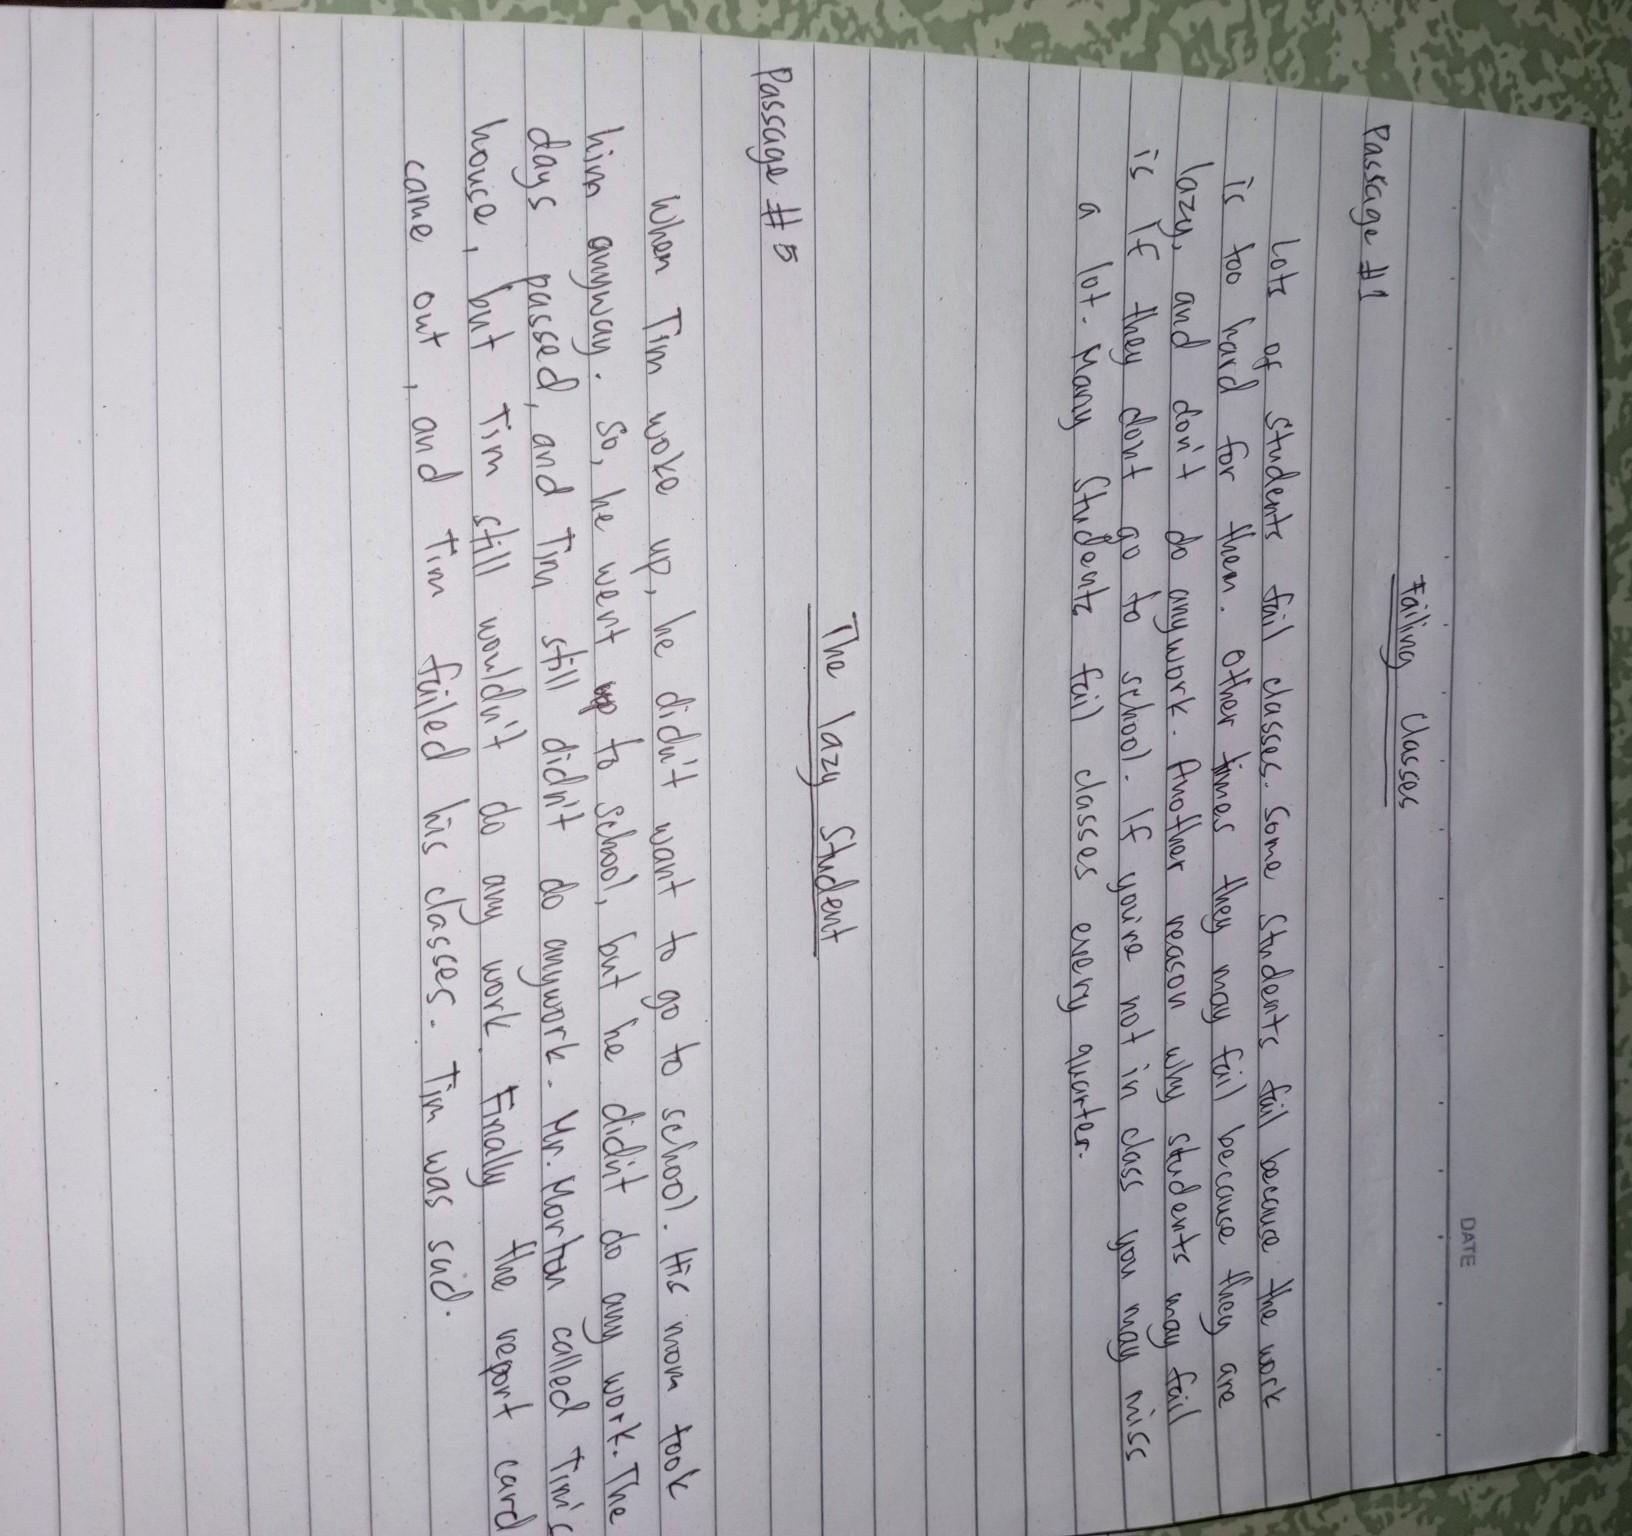 DATE
Failing Classes
Passage #1
Lots of students fail classes. Some students fail because the work
is too hard for them. Other times they may fail because they are
lazy, and don't do anywork. Another reason why students may fail
is if they don't go to school. If you're not in class you may miss
a lot. Many students fail classes every quarter.
The lazy Student
Passage #5
When Tim woke up, he didn't want to go to school. His mom took
him anyway. So, he went to school, but he didn't do any work. The
days passed, and Tim still didn't do anywork. Mr. Morton called Tim's
house, but Tim still wouldn't do any work. Finally the report card
came out, and Tim failed his classes. Tim was said.